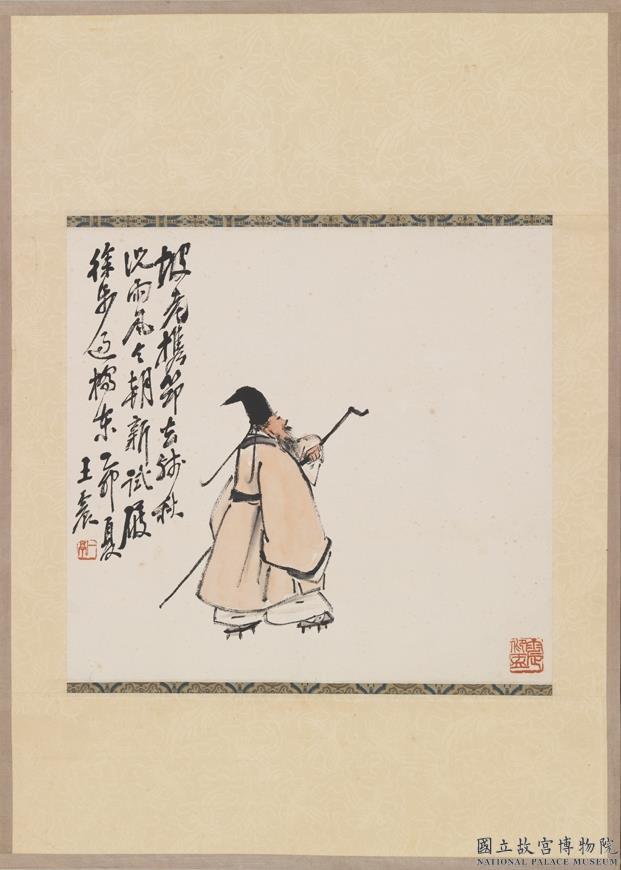 坡老携筇去秋
況雨風今朝新試屐
徐步過橋東 乙卯夏
王震
國立故宮博物院
NATIONAL PALACE MUSEUM